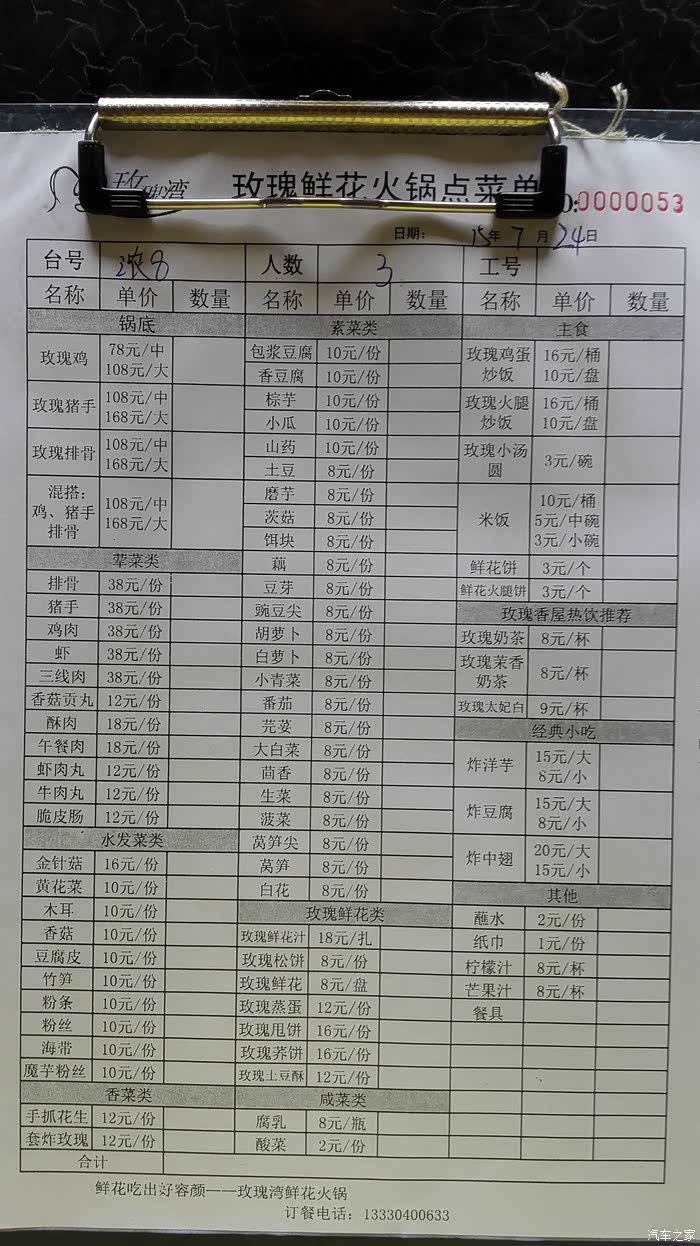 玫瑰湾 玫瑰鲜花火锅点菜单 NO:0000053
日期: 15年 7 月 24日
台号 浓8 人数 3 工号
名称 单价 数量 名称 单价 数量 名称 单价 数量
锅底
玫瑰鸡 78元/中 108元/大
玫瑰猪手 108元/中 168元/大
玫瑰排骨 108元/中 168元/大
混搭: 鸡、猪手 排骨 108元/中 168元/大
荤菜类
排骨 38元/份
猪手 38元/份
鸡肉 38元/份
虾 38元/份
三线肉 38元/份
香菇贡丸 12元/份
酥肉 18元/份
午餐肉 18元/份
虾肉丸 12元/份
牛肉丸 12元/份
脆皮肠 12元/份
水发菜类
金针菇 16元/份
黄花菜 10元/份
木耳 10元/份
香菇 10元/份
豆腐皮 10元/份
竹笋 10元/份
粉条 10元/份
粉丝 10元/份
海带 10元/份
魔芋粉丝 10元/份
香菜类
手抓花生 12元/份
套炸玫瑰 12元/份
合计
素菜类
包浆豆腐 10元/份
香豆腐 10元/份
棕芋 10元/份
小瓜 10元/份
山药 10元/份
土豆 8元/份
磨芋 8元/份
茨菇 8元/份
饵块 8元/份
藕 8元/份
豆芽 8元/份
豌豆尖 8元/份
胡萝卜 8元/份
白萝卜 8元/份
小青菜 8元/份
番茄 8元/份
芫荽 8元/份
大白菜 8元/份
茴香 8元/份
生菜 8元/份
菠菜 8元/份
莴笋尖 8元/份
莴笋 8元/份
白花 8元/份
玫瑰鲜花类
玫瑰鲜花汁 18元/扎
玫瑰松饼 8元/份
玫瑰鲜花 8元/盘
玫瑰蒸蛋 12元/份
玫瑰甩饼 16元/份
玫瑰荞饼 16元/份
玫瑰土豆酥 12元/份
咸菜类
腐乳 8元/瓶
酸菜 2元/份
主食
玫瑰鸡蛋炒饭 16元/桶 10元/盘
玫瑰火腿炒饭 16元/桶 10元/盘
玫瑰小汤圆 3元/碗
米饭 10元/桶 5元/中碗 3元/小碗
鲜花饼 3元/个
鲜花火腿饼 3元/个
玫瑰香屋热饮推荐
玫瑰奶茶 8元/杯
玫瑰茉香奶茶 8元/杯
玫瑰太妃白 9元/杯
经典小吃
炸洋芋 15元/大 8元/小
炸豆腐 15元/大 8元/小
炸中翅 20元/大 15元/小
其他
蘸水 2元/份
纸巾 1元/份
柠檬汁 8元/杯
芒果汁 8元/杯
餐具
鲜花吃出好容颜——玫瑰湾鲜花火锅
订餐电话: 13330400633
汽车之家